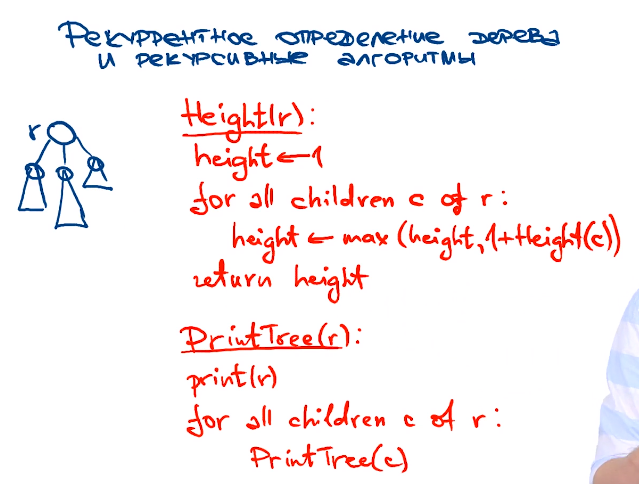 Рекуррентное определение дерева
и рекурсивные алгоритмы
r
Height(r):
height ← 1
for all children c of r:
height ← max (height, 1+Height(c))
return height
PrintTree(r):
print(r)
for all children c of r:
PrintTree(c)